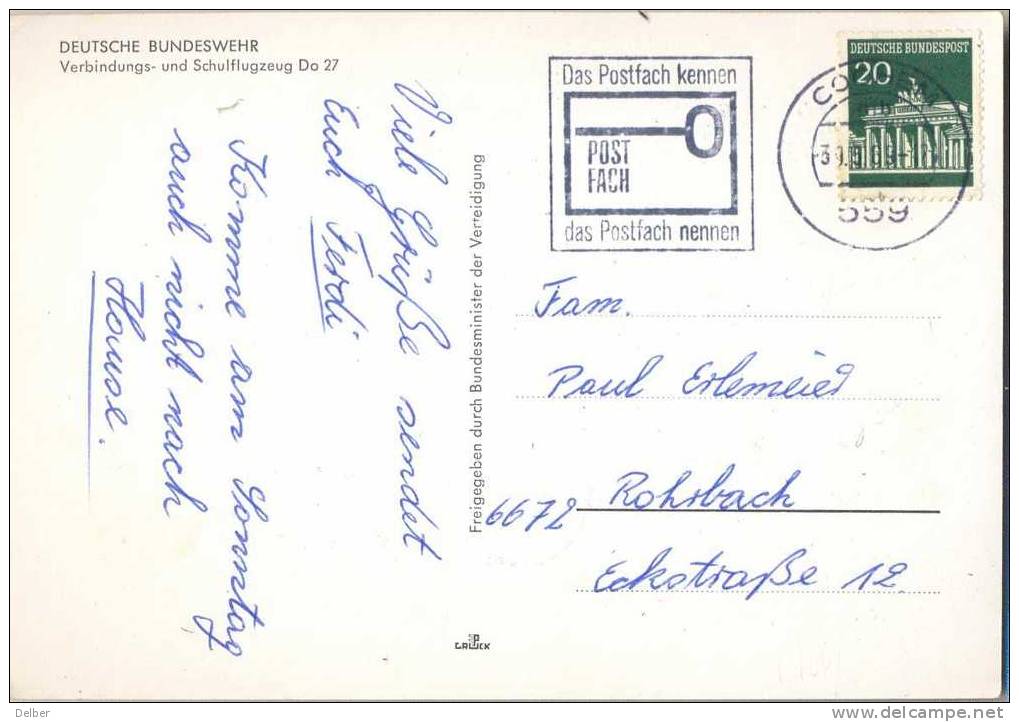 DEUTSCHE BUNDESWEHR
Verbindungs- und Schulflugzeug Do 27
Viele Grüße sendet
Euch Ferdi
Komme am Sonntag
auch nicht nach
Hause.
Freigegeben durch Bundesminister der Verteidigung
Das Postfach kennen
POST
FACH
das Postfach nennen
DEUTSCHE BUNDESPOST
20
559
Fam.
Paul
6672 Rohrbach
Eckstraße 12.
Delber
delcampe.net